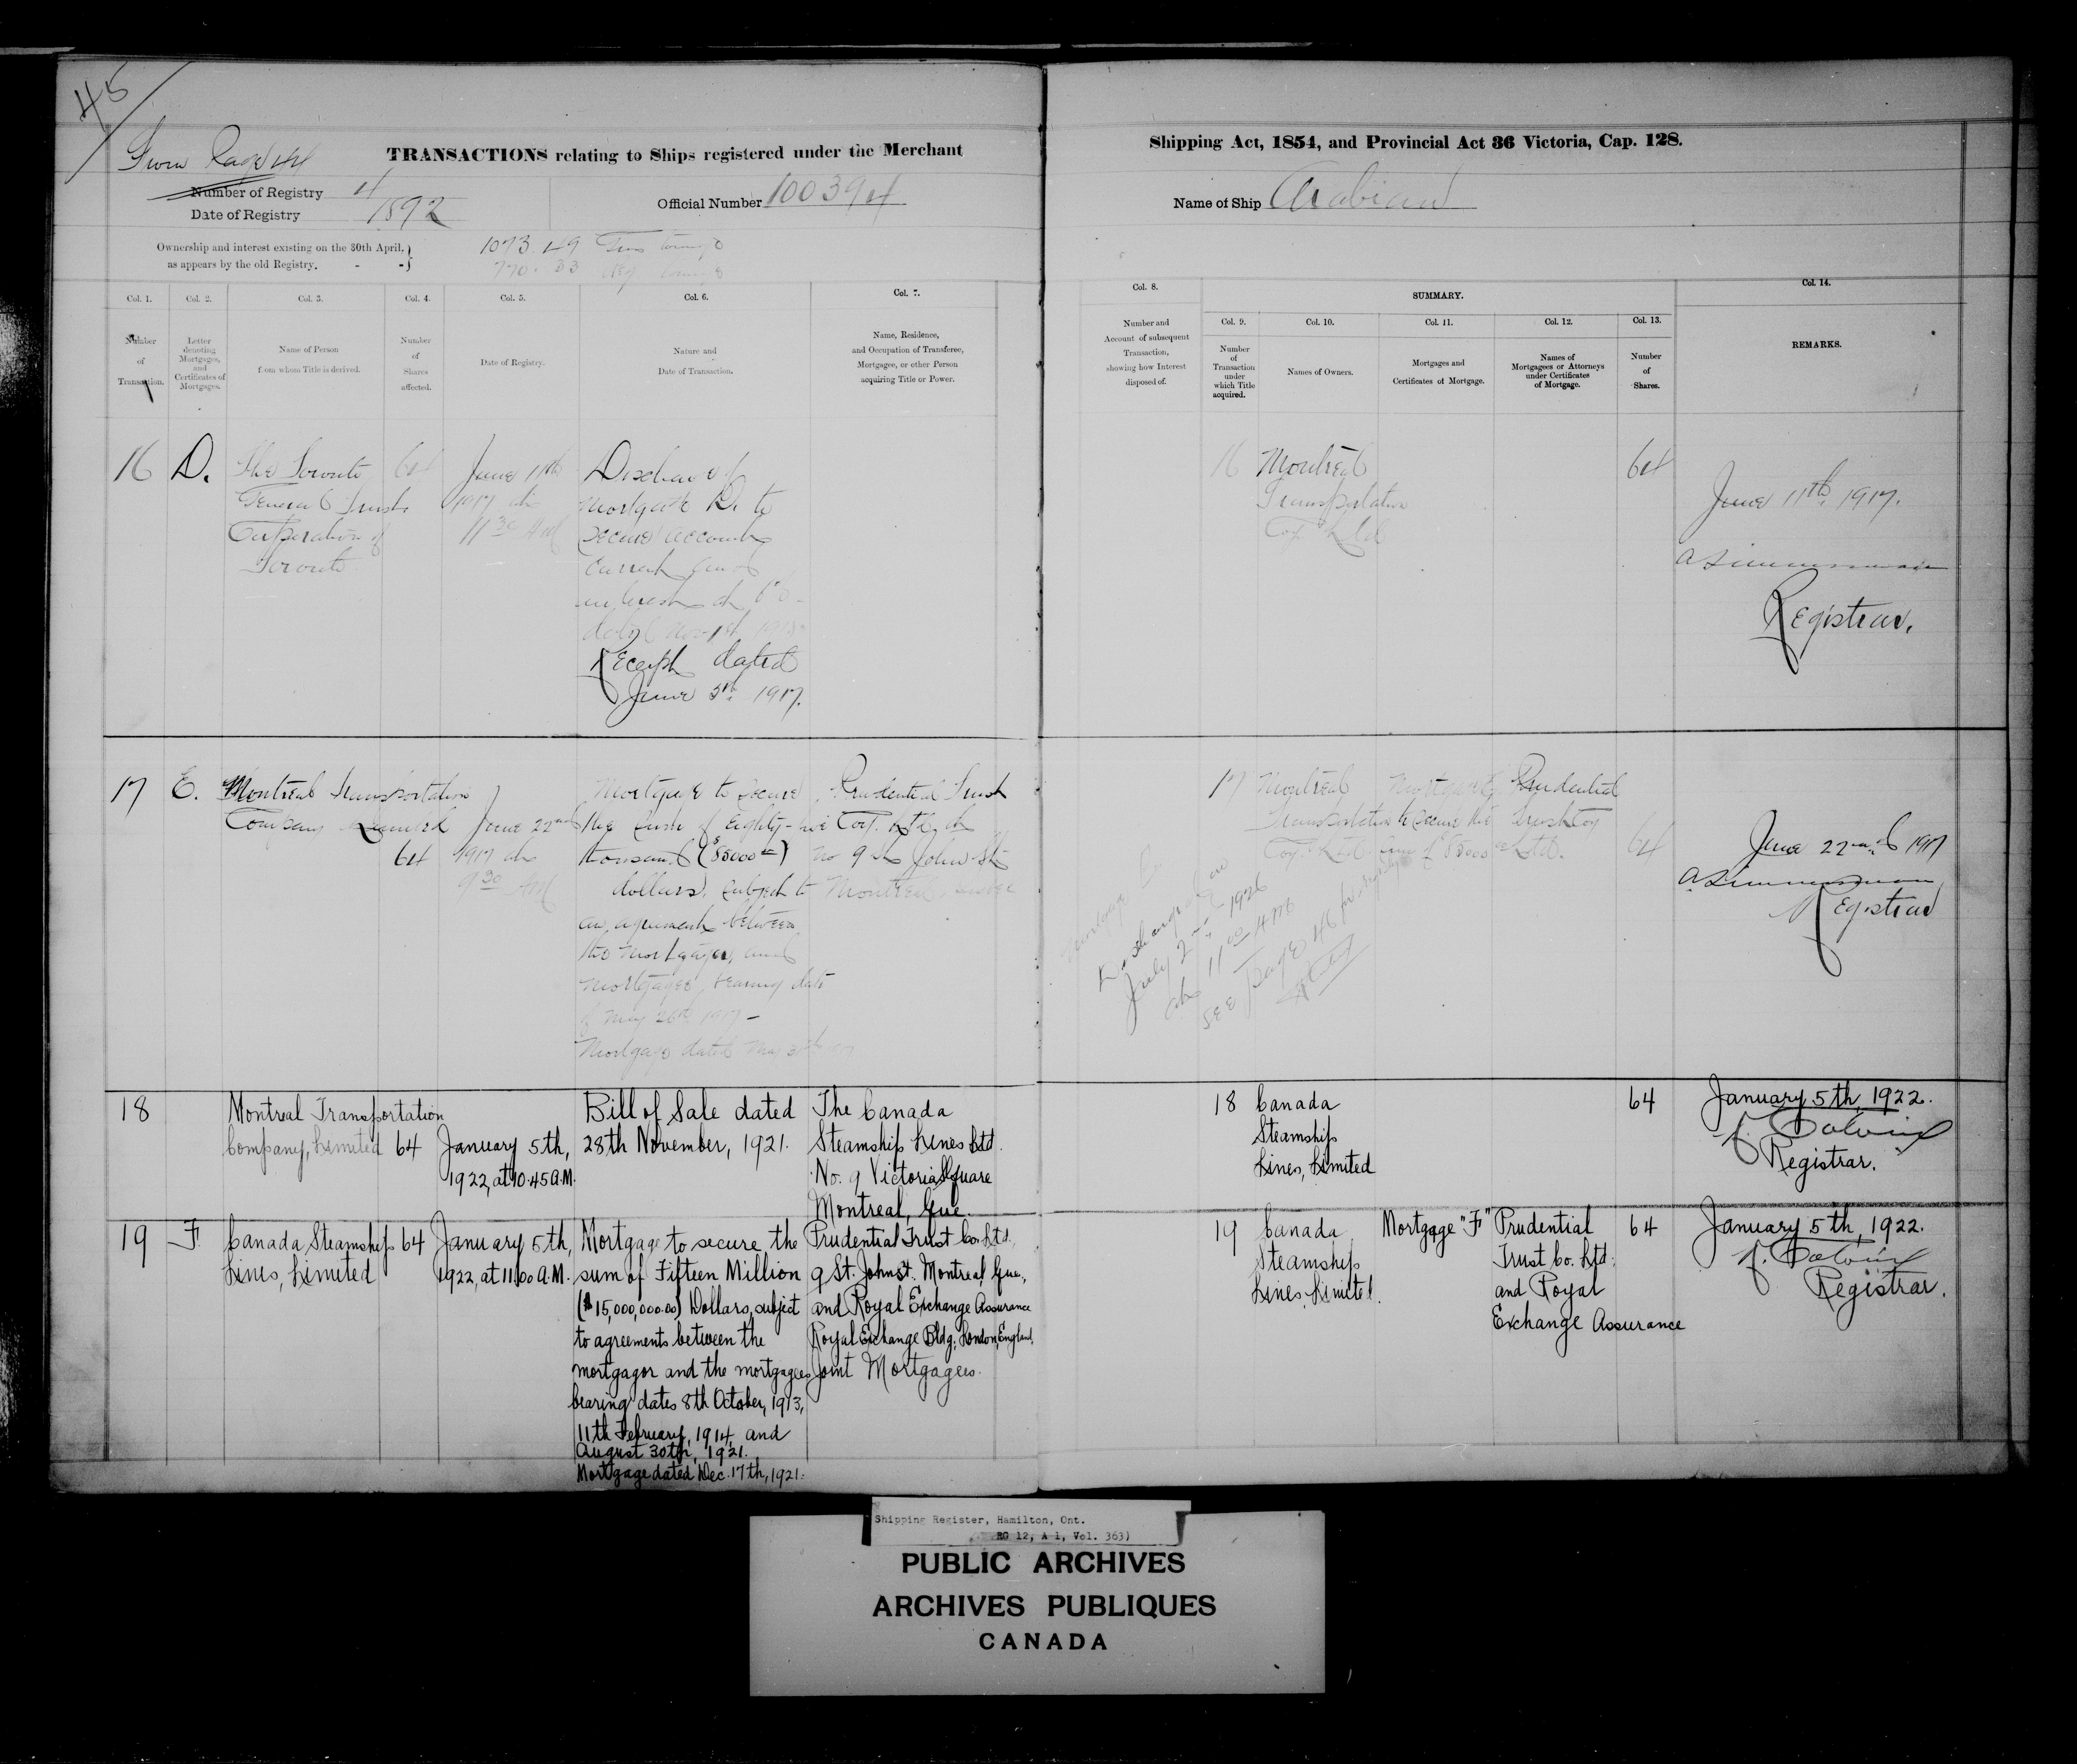 45
From Page 44
TRANSACTIONS relating to Ships registered under the Merchant
Number of Registry 4
Date of Registry 1892
Official Number 100394
Ownership and interest existing on the 30th April,
as appears by the old Registry. - -
1073.49 Tons
770.33
Col. 1.
Col. 2.
Col. 3.
Col. 4.
Col. 5.
Col. 6.
Col. 7.
Number
of
Transaction.
Letter
denoting
Mortgages,
and
Certificates of
Mortgages.
Name of Person
from whom Title is derived.
Number
of
Shares
affected.
Date of Registry.
Nature and
Date of Transaction.
Name, Residence,
and Occupation of Transferee,
Mortgagee, or other Person
acquiring Title or Power.
16
D.
The Toronto
General Trusts
Corporation of
Toronto
64
June 11th
1917 at
11 30 AM
Discharge of
Mortgage D. to
secure account
current and
interest at
dated Nov
Receipt dated
June 5th 1917.
17
E.
Montreal Transportation
Company Limited
64
June 22nd
1917 at
9 30 AM
Mortgage to secure
the sum of Eighty-five
thousand ($85000 00)
dollars, subject to
an agreement between
the mortgagor, and
mortgagee, bearing date
of May 26th 1917 -
Mortgage dated May
Prudential Trust
Coy. Ltd, at
No 9 St John St
Montreal, Quebec
18
Montreal Transportation
Company, Limited
64
January 5th,
1922, at 10.45 A.M.
Bill of Sale dated
28th November, 1921.
The Canada
Steamship Lines Ltd.
No. 9 Victoria Square
Montreal, Que.
19
F
Canada Steamship
Lines, Limited
64
January 5th,
1922, at 11.00 A.M.
Mortgage to secure the
sum of Fifteen Million
($15,000,000.00) Dollars, subject
to agreements between the
mortgagor and the mortgagees
bearing dates 8th October, 1913,
11th February, 1914, and
August 30th, 1921.
Mortgage dated Dec. 17th, 1921.
Prudential Trust Co. Ltd.,
9 St. John St. Montreal, Que.,
and Royal Exchange Assurance
Royal Exchange Bldg. London, England,
Joint Mortgagees.
Shipping Act, 1854, and Provincial Act 36 Victoria, Cap. 128.
Name of Ship Arabian
Col. 8.
SUMMARY.
Col. 14.
Col. 9.
Col. 10.
Col. 11.
Col. 12.
Col. 13.
Number and
Account of subsequent
Transaction,
showing how Interest
disposed of.
Number
of
Transaction
under
which Title
acquired.
Names of Owners.
Mortgages and
Certificates of Mortgage.
Names of
Mortgagees or Attorneys
under Certificates
of Mortgage.
Number
of
Shares.
REMARKS.
16
Montreal
Transportation
Coy. Ltd
64
June 11th 1917.
Registrar.
Mortgage E
Discharged on
July 2nd 1926
at 11 00 AM
See page 46
17
Montreal
Transportation
Coy. Ltd
Mortgage E
to secure the
sum of 85000 00
Prudential
Trust Coy
Ltd.
64
June 22nd 1917
Registrar
18
Canada
Steamship
Lines, Limited
64
January 5th, 1922.
Registrar.
19
Canada
Steamship
Lines, Limited.
Mortgage "F"
Prudential
Trust Co. Ltd.
and Royal
Exchange Assurance
64
January 5th, 1922.
Registrar.
Shipping Register, Hamilton, Ont.
RG 12, A 1, Vol. 363)
PUBLIC ARCHIVES
ARCHIVES PUBLIQUES
CANADA